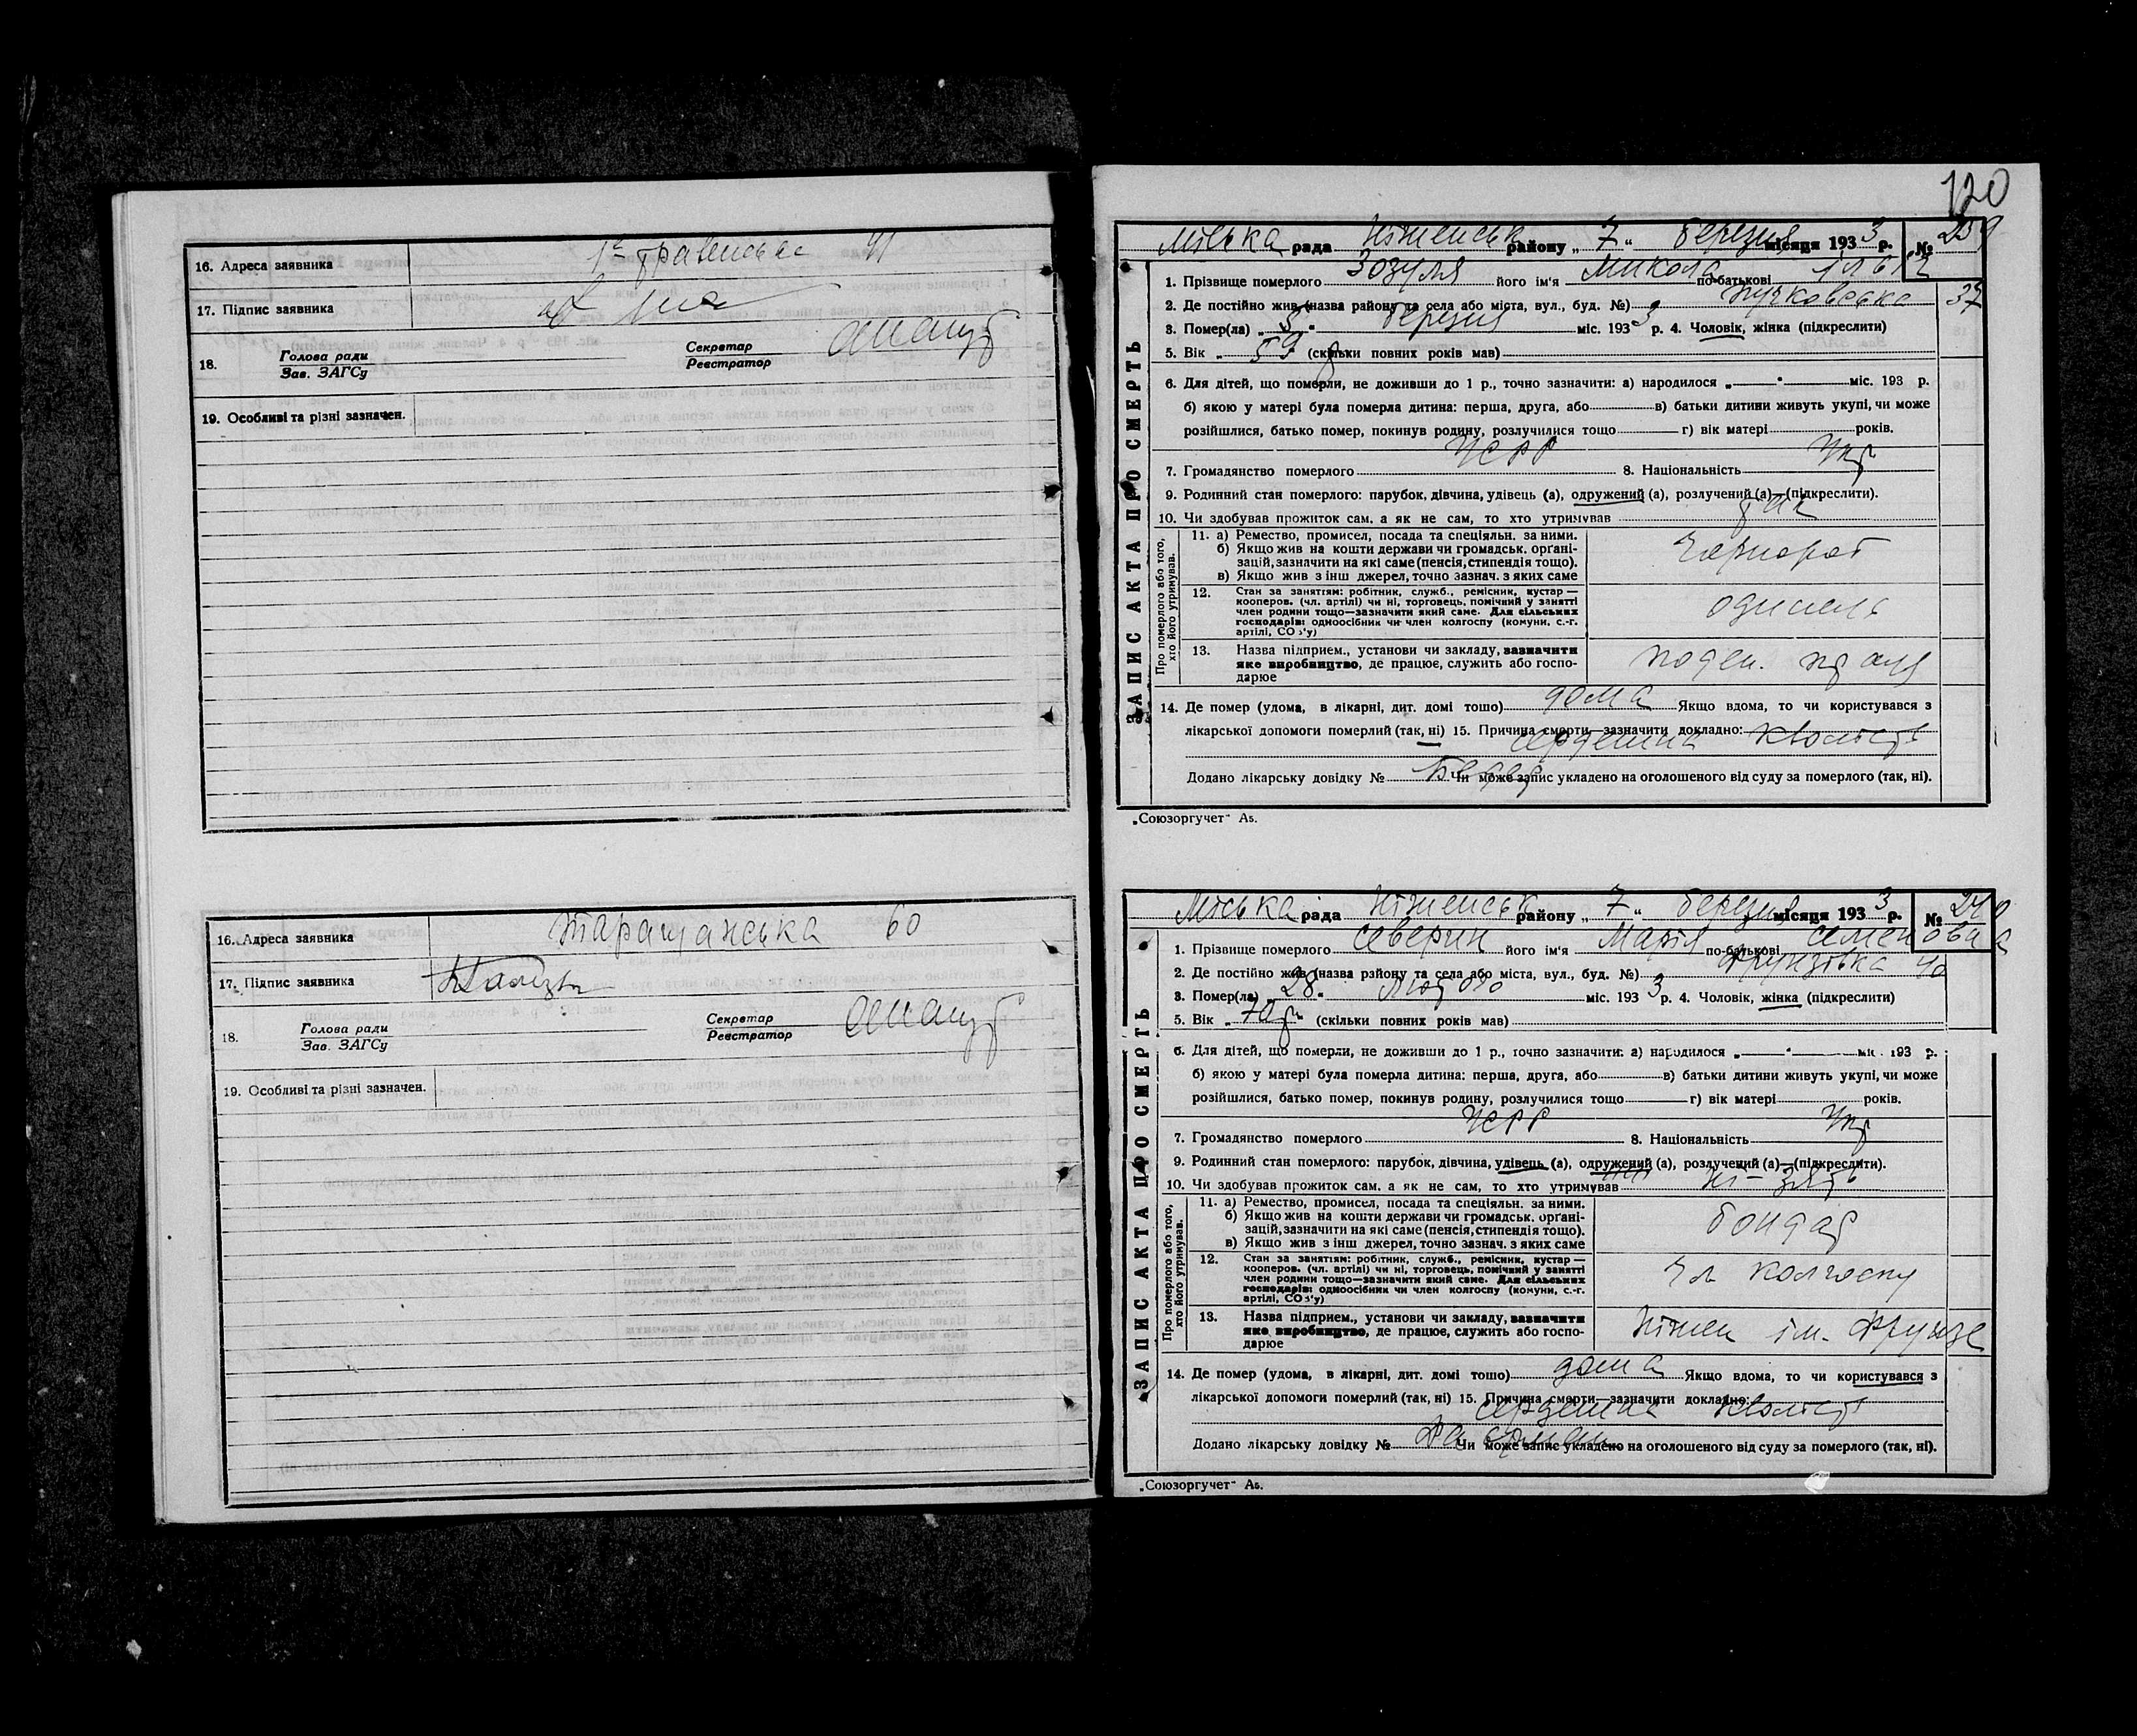 16. Адреса заявника 1го травенська 41
17. Підпис заявника
18. Голова ради
Зав. ЗАГСу
Секретар
Реєстратор
19. Особливі та різні зазначен.
16. Адреса заявника Таращанська 60
17. Підпис заявника
18. Голова ради
Зав. ЗАГСу
Секретар
Реєстратор
19. Особливі та різні зазначен.
120
ЗАПИС АКТА ПРО СМЕРТЬ
Міська рада Ніженськ району „ 7 “ березня місяця 1933 р. № 239
1. Прізвище померлого Зозуля його ім'я Микола по-батькові
2. Де постійно жив (назва району та села або міста, вул., буд. №) 37
3. Помер(ла) „ 5 “ березня міс. 1933 р. 4. Чоловік, жінка (підкреслити)
5. Вік „ 59 р “ (скільки повних років мав)
6. Для дітей, що померли, не доживши до 1 р., точно зазначити: а) народилося „ “ міс. 193 р.
б) якою у матері була померла дитина: перша, друга, або в) батьки дитини живуть укупі, чи може
розійшлися, батько помер, покинув родину, розлучилися тощо г) вік матері років.
7. Громадянство померлого УСРР 8. Національність Укр
9. Родинний стан померлого: парубок, дівчина, удівець (а), одружений (а), розлучений (а)—(підкреслити).
10. Чи здобував прожиток сам, а як не сам, то хто утримував так
Про померлого або того, хто його утримував.
11. а) Ремество, промисел, посада та спеціяльн. за ними.
б) Якщо жив на кошти держави чи громадськ. органі-
зацій, зазначити на які саме (пенсія, стипендія тощо).
в) Якщо жив з інш джерел, точно зазнач. з яких саме
Чорнороб
12. Стан за заняттям: робітник, служб., ремісник, кустар—
кооперов. (чл. артілі) чи ні, торговець, помічний у занятті
член родини тощо—зазначити який саме. Для сільських
господарів: одноосібник чи член колгоспу (комуни, с.-г.
артілі, СОЗ'у)
13. Назва підприєм., установи чи закладу, зазначити
яке виробництво, де працює, служить або госпо-
дарює
поден. праця
14. Де помер (удома, в лікарні, дит. домі тощо) дома Якщо вдома, то чи користувався з
лікарської допомоги померлий (так, ні) 15. Причина смерти—зазначити докладно:
Додано лікарську довідку № Чи може запис укладено на оголошеного від суду за померлого (так, ні).
„Союзоргучет“ А5.
ЗАПИС АКТА ПРО СМЕРТЬ
Міська рада Ніженськ району „ 7 “ березня місяця 1933 р. № 240
1. Прізвище померлого Северин його ім'я Марія по-батькові Семенова
2. Де постійно жив (назва району та села або міста, вул., буд. №) Фрунзівка 40
3. Помер(ла) „ 28 “ лютого міс. 1933 р. 4. Чоловік, жінка (підкреслити)
5. Вік „ 70 р “ (скільки повних років мав)
6. Для дітей, що померли, не доживши до 1 р., точно зазначити: а) народилося „ “ міс. 193 р.
б) якою у матері була померла дитина: перша, друга, або в) батьки дитини живуть укупі, чи може
розійшлися, батько помер, покинув родину, розлучилися тощо г) вік матері років.
7. Громадянство померлого УСРР 8. Національність Укр
9. Родинний стан померлого: парубок, дівчина, удівець (а), одружений (а), розлучений (а)—(підкреслити).
10. Чи здобував прожиток сам, а як не сам, то хто утримував ні - зять
Про померлого або того, хто його утримував.
11. а) Ремество, промисел, посада та спеціяльн. за ними.
б) Якщо жив на кошти держави чи громадськ. органі-
зацій, зазначити на які саме (пенсія, стипендія тощо).
в) Якщо жив з інш джерел, точно зазнач. з яких саме
бондар
12. Стан за заняттям: робітник, служб., ремісник, кустар—
кооперов. (чл. артілі) чи ні, торговець, помічний у занятті
член родини тощо—зазначити який саме. Для сільських
господарів: одноосібник чи член колгоспу (комуни, с.-г.
артілі, СОЗ'у)
чл колгоспу
13. Назва підприєм., установи чи закладу, зазначити
яке виробництво, де працює, служить або госпо-
дарює
Ніжен ім. Фрунзе
14. Де помер (удома, в лікарні, дит. домі тощо) дома Якщо вдома, то чи користувався з
лікарської допомоги померлий (так, ні) 15. Причина смерти—зазначити докладно:
Додано лікарську довідку № Чи може запис укладено на оголошеного від суду за померлого (так, ні).
„Союзоргучет“ А5.